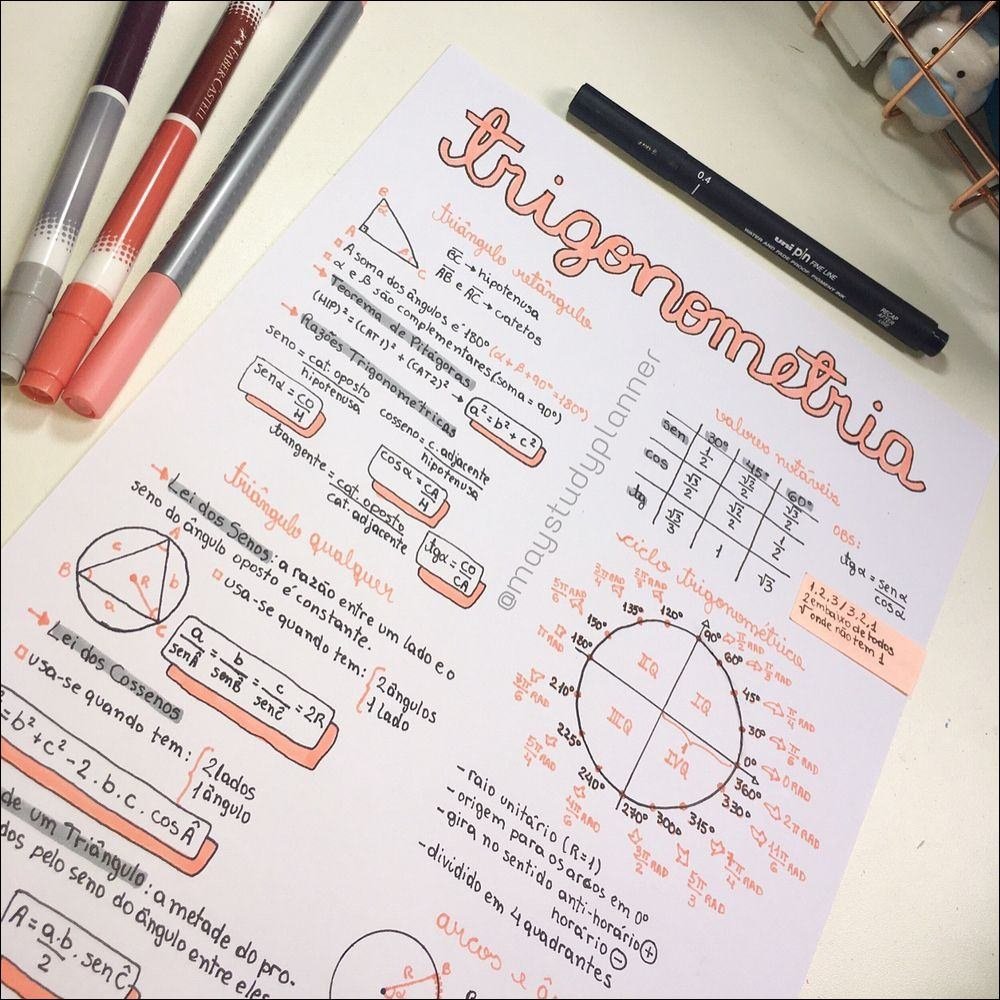 trigonometria
FABER-CASTELL
0.4
uni pin FINE LINE
WATER AND FADE PROOF, PIGMENT INK
RECAP
AFTER
USE
@maystudyplanner
triângulo retângulo
B
α
A
β
C
BC → hipotenusa
AB e AC → catetos
A soma dos ângulos é 180° (α+β+90°=180°)
α e β são complementares (soma = 90°)
Teorema de Pitágoras
(HIP)² = (CAT1)² + (CAT2)² → a² = b² + c²
Razões Trigonométricas
seno = cat. oposto
hipotenusa
senα = CO
H
cosseno = c. adjacente
hipotenusa
cosα = CA
H
tangente = cat. oposto
cat. adjacente
tgα = CO
CA
triângulo qualquer
Lei dos Senos: a razão entre um lado e o
seno do ângulo oposto é constante.
usa-se quando tem: { 2 ângulos
1 lado
A
B
C
c
b
a
R
a = b = c = 2R
senÂ senB̂ senĈ
Lei dos Cossenos
usa-se quando tem: { 2 lados
1 ângulo
= b² + c² - 2.b.c.cosÂ
de um Triângulo: a metade do pro-
dos pelo seno do ângulo entre eles
A = a.b . senĈ
2
valores notáveis
30° 45° 60°
sen 1/2 √2/2 √3/2
cos √3/2 √2/2 1/2
tg √3/3 1 √3
OBS:
tgα = senα
cosα
1,2,3/3,2,1
2 embaixo de todos
√ onde não tem 1
ciclo trigonométrico
90° π/2 RAD
60° π/3 RAD
45° π/4 RAD
30° π/6 RAD
0° 0 RAD
360° 2π RAD
330° 11π/6 RAD
315° 7π/4 RAD
300° 5π/3 RAD
270° 3π/2 RAD
240° 4π/6 RAD
225° 5π/4 RAD
210° 7π/6 RAD
180° π RAD
150° 5π/6 RAD
135° 3π/4 RAD
120° 2π/3 RAD
IIQ
IQ
IIIQ
IVQ
1
- raio unitário (R=1)
- origem para os arcos em 0°
- gira no sentido anti-horário +
horário -
- dividido em 4 quadrantes
arcos e
R
B
α